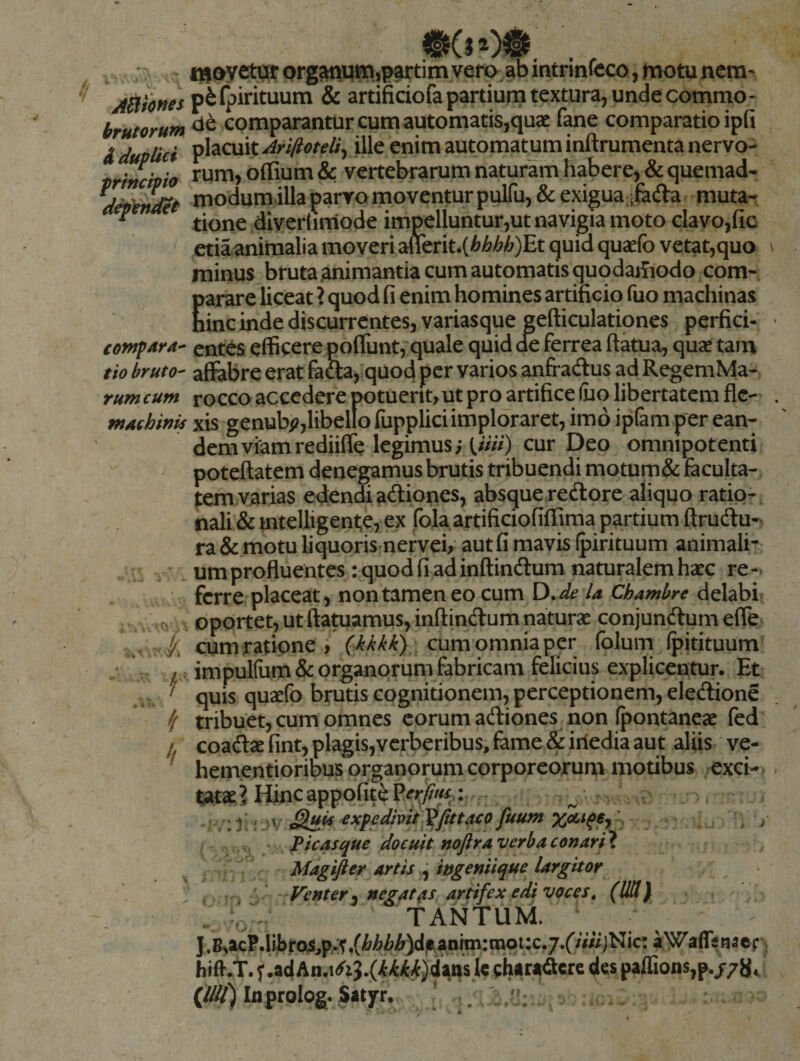 (32)
movetur organum,partim vero ab intrinſeco, motu nem-
Actiones pè ſpirituum & artificioſa partium textura, unde commo-
brutorum dè comparantur cum automatis,quæ ſane comparatio ipſi
à duplici placuit Ariſtoteli, ille enim automatum inſtrumenta nervo-
principio rum, oſſium & vertebrarum naturam habere, & quemad-
dependēt modum illa parvo moventur pulſu, & exigua facta muta-
tione diverſimode impelluntur,ut navigia moto clavo,ſic
etiā animalia moveri aſſerit.(hhhh)Et quid quæſo vetat,quo
minus bruta animantia cum automatis quodammodo com-
parare liceat? quod ſi enim homines artificio ſuo machinas
hinc inde discurrentes, variasque geſticulationes perfici-
compara- entes efficere poſſunt, quale quid de ferrea ſtatua, quæ tam
tio bruto- affabre erat facta, quod per varios anfractus ad Regem Ma-
rum cum rocco accedere potuerit, ut pro artifice ſuo libertatem fle-
machinis xis genubꝯ,libello ſupplici imploraret, imò ipſam per ean-
dem viam rediiſſe legimus; (iiii) cur Deo omnipotenti
poteſtatem denegamus brutis tribuendi motum & faculta-
tem varias edendi actiones, absque rectore aliquo ratio-
nali & intelligente, ex ſola artificioſiſſima partium ſtructu-
ra & motu liquoris nervei, aut ſi mavis ſpirituum animali-
um profluentes : quod ſi ad inſtinctum naturalem hæc re-
ferre placeat, non tamen eo cum D. de la Chambre delabi
oportet, ut ſtatuamus, inſtinctum naturæ conjunctum eſſe
cum ratione , (kkkk) cum omnia per ſolum ſpitituum
impulſum & organorum fabricam felicius explicentur. Et
quis quæſo brutis cognitionem, perceptionem, electionē
tribuet, cum omnes eorum actiones non ſpontaneæ ſed
coactæ ſint, plagis,verberibus, fame & inedia aut aliis ve-
hementioribus organorum corporeorum motibus exci-
tatæ? Hinc appoſitè Perſius :
Quis expedivit Pſittaco ſuum χαιρε,
Picasque docuit noſtra verba conari?
Magiſter artis , ingeniique largitor
Venter, negatas artifex edi voces. (llll)
TANTUM.
J.B,acP.libros,p.5.(hhhh)de anim:mot:c.7.(iiii)Nic: à Waſſenaer
hiſt.T.5.ad An.1623.(kkkk)dans le charactere des paſſions,p.578.
(llll) In prolog. Satyr.